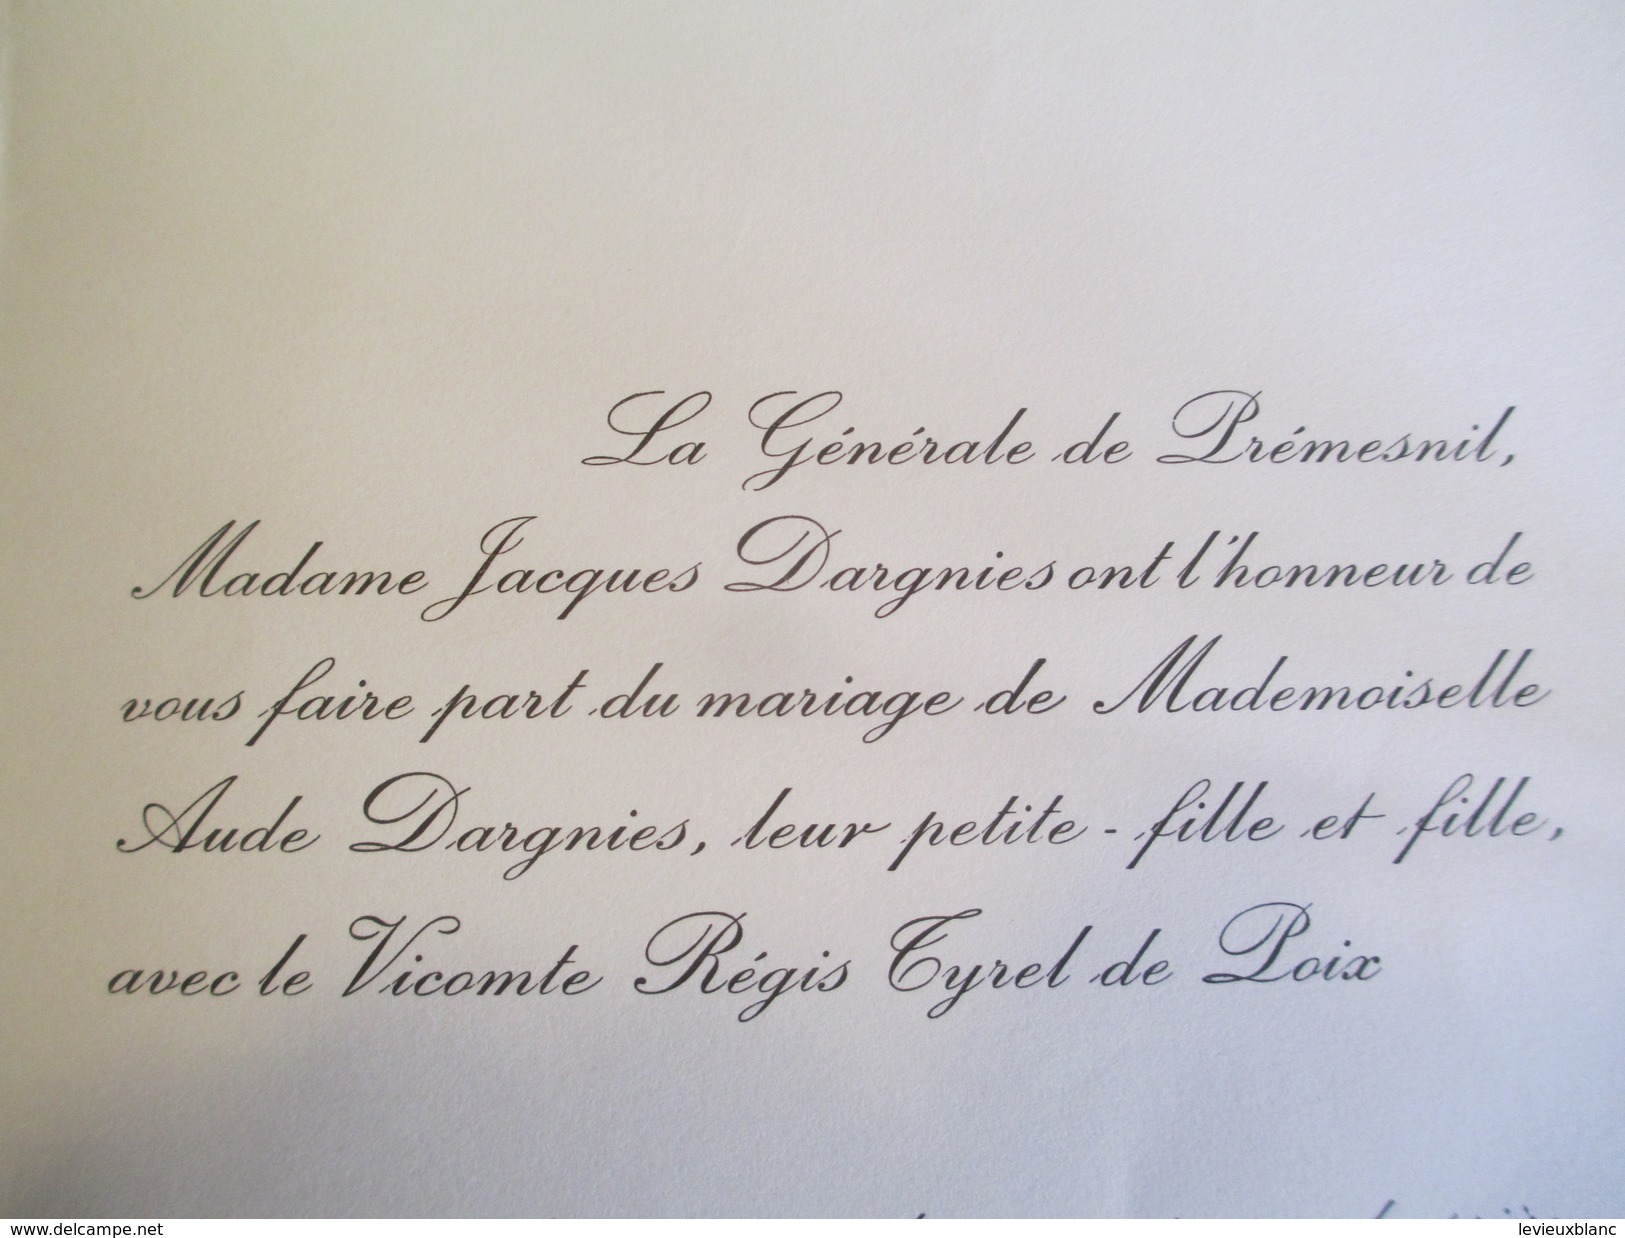 La Générale de Prémesnil,
Madame Jacques Dargnies ont l'honneur de
vous faire part du mariage de Mademoiselle
Aude Dargnies, leur petite-fille et fille,
avec le Vicomte Régis Tyrel de Poix
delcampe.net
levieuxblanc